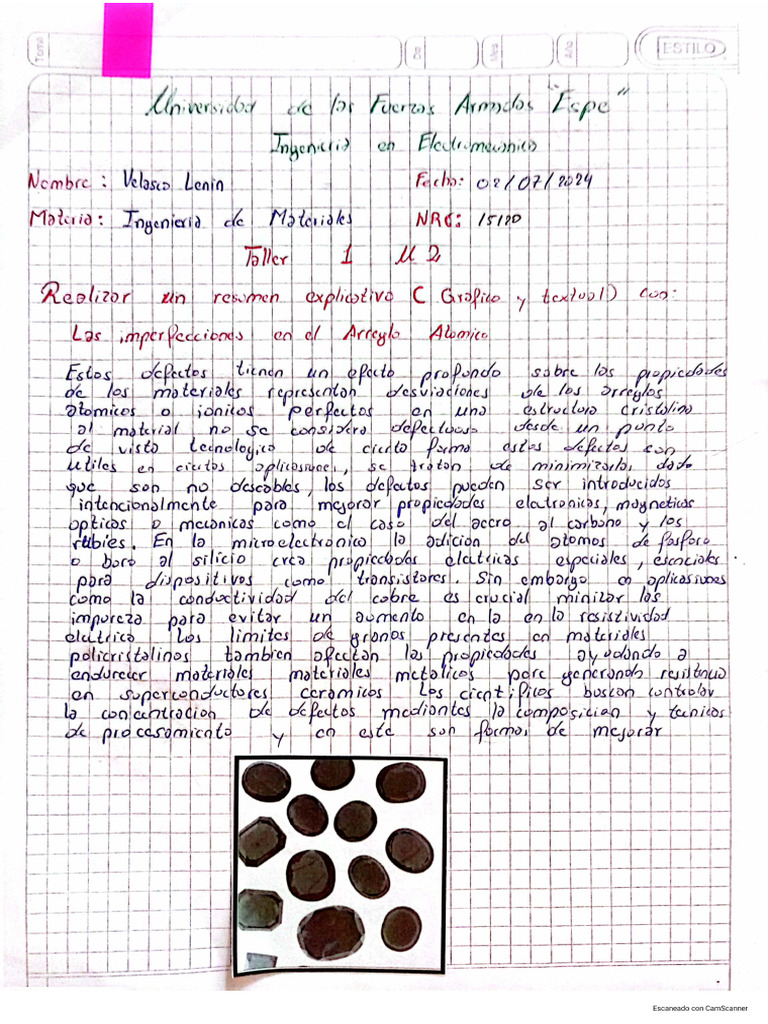 Tema
De
Mes
Año
ESTILO
Universidad de las Fuerzas Armadas "Espe"
Ingenieria en Electromecanica
Nombre: Velasco Lenin Fecha: 02/07/2024
Materia: Ingenieria de Materiales NRC: 15120
Taller 1 U2
Realizar un resumen explicativo (Grafico y textual) con:
Las imperfecciones en el Arreglo Atomico
Estos defectos tienen un efecto profundo sobre las propiedades
de los materiales representan desviaciones de los arreglos
atomicos o ionicos perfectos en una estructura cristalina
al material no se considera defectuoso desde un punto
de vista tecnologico de cierta forma estos defectos son
utiles en ciertas aplicasiones, se tratan de minimizarlos dado
que son no deseables, los defectos pueden ser introducidos
intencionalmente para mejorar propiedades electronicas, magneticas
opticas o mecanicas como el caso del acero al carbono y los
rubies. En la microelectronica la adicion del atomos de fosforo
o boro al silicio crea propiedades electricas especiales, esenciales
para dispositivos como transistores. Sin embargo en aplicasiones
como la conductividad del cobre es crucial minizar las
impureza para evitar un aumento en la en la resistividad
electrica Los limites de granos presentes en materiales
policristalinos tambien afectan las propiedades ayudando a
endurecer materiales materiales metalicos pero generando resistencia
en superconductores ceramicos Los cientificos buscan controlar
la concentracion de defectos mediantes la composician y tecnicas
de procesamiento y en este son formas de mejorar
Escaneado con CamScanner